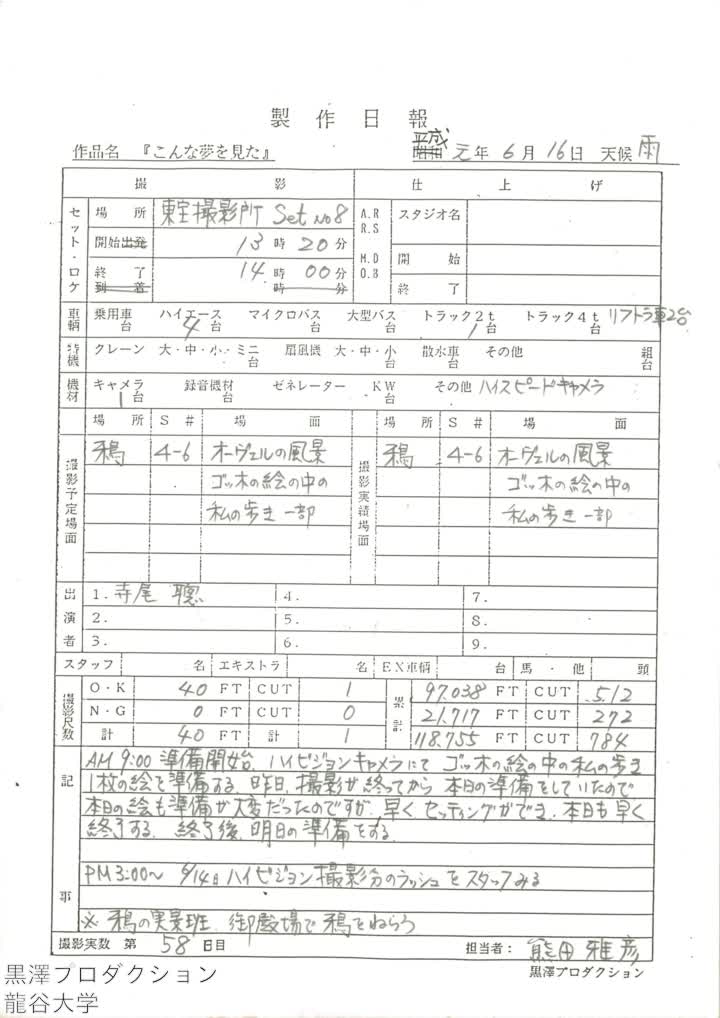 製作日報
作品名 『こんな夢を見た』 平成 元年 6月 16日 天候 雨
撮影 仕上げ
セット・ロケ 場所 東宝撮影所 Set No8 A.R R.S スタジオ名
開始出発 13時 20分 M.D O.B 開始
終了 14時 00分 終了
到着 時 分
車輌 乗用車 台 ハイエース 4台 マイクロバス 台 大型バス 台 トラック2t 1台 トラック4t 台 リフトラ車2台
特機 クレーン 大・中・小・ミニ 台 扇風機 大・中・小 台 散水車 台 その他 組台
機材 キャメラ 1台 録音機材 台 ゼネレーター KW 台 その他 ハイスピードキャメラ
撮影予定場面 場所 S# 場面 撮影実績場面 場所 S# 場面
鴉 4-6 オーヴェルの風景 鴉 4-6 オーヴェルの風景
ゴッホの絵の中の ゴッホの絵の中の
私の歩き 一部 私の歩き 一部
出演者 1. 寺尾 聰 4. 7.
2. 5. 8.
3. 6. 9.
スタッフ 名 エキストラ 名 EX車輌 台 馬・他 頭
撮影尺数 O・K 40 FT CUT 1 累計 97.038 FT CUT 512
N・G 0 FT CUT 0 21.717 FT CUT 272
計 40 FT 計 1 118.755 FT CUT 784
記事 AM 9:00 準備開始、ハイビジョンキャメラにて ゴッホの絵の中の私の歩き
1枚の絵を準備する。昨日、撮影が終ってから 本日の準備をしていたので
本日の絵も準備が大変だったのですが、早く セッティングができ、本日も早く
終了する。 終了後、明日の準備をする。
PM3:00〜 6/14日 ハイビジョン撮影分のラッシュをスタッフみる
※ 鴉の実景班、御殿場で鴉をねらう
撮影実数 第 58 日目 担当者: 熊田 雅彦
黒澤プロダクション
黒澤プロダクション
龍谷大学